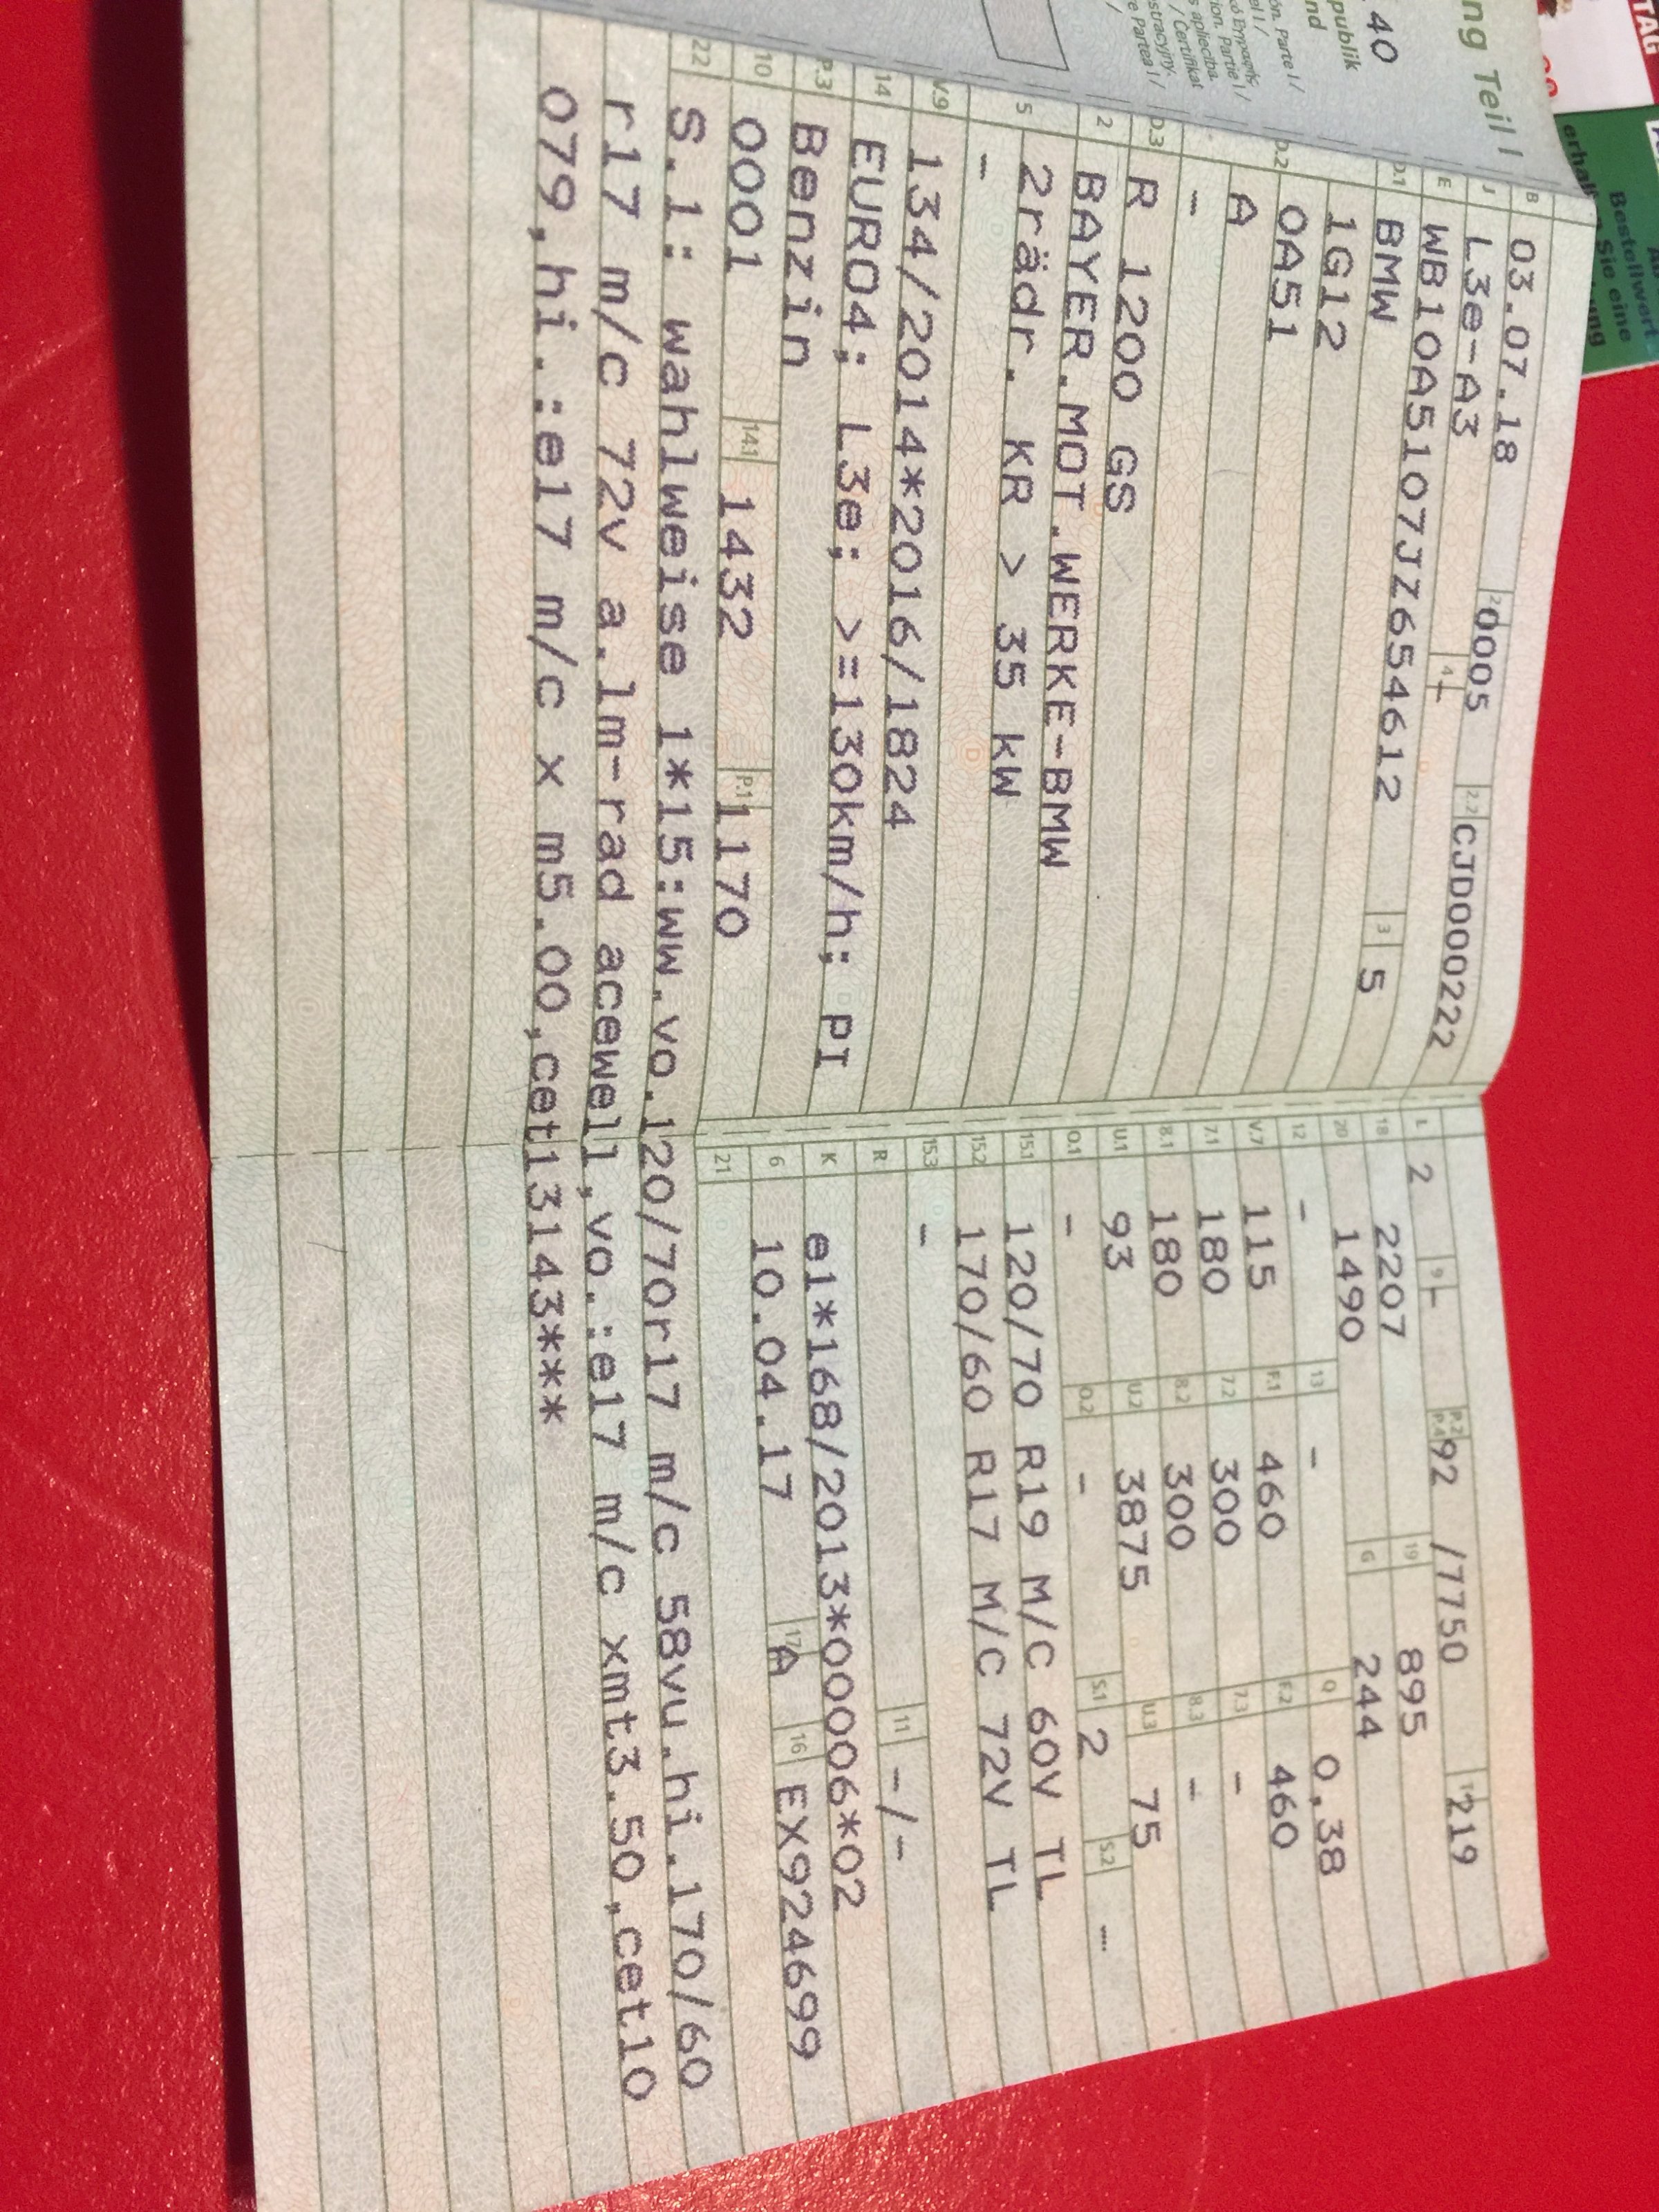 ng Teil I
40
publik
nd
B 03.07.18 2 0005 2.2 CJD000222
J L3e-A3 4 -
E WB10A5107JZ654612 3 5
D.1 BMW
1G12
D.2 0A51
A
-
D.3 R 1200 GS
2 BAYER.MOT.WERKE-BMW
5 2rädr. KR > 35 kW
-
V.9 134/2014*2016/1824
14 EURO4; L3e; >=130km/h; PI
P.3 Benzin
10 0001 14.1 1432 P.1 1170
L 2 9 - P.2 P.4 92 /7750 T 219
18 2207 19 895
20 1490 G 244
12 - 13 - Q 0,38
V.7 115 F.1 460 F.2 460
7.1 180 7.2 300 7.3 -
8.1 180 8.2 300 8.3 -
U.1 93 U.2 3875 U.3 75
O.1 - O.2 - S.1 2 S.2 -
15.1 120/70 R19 M/C 60V TL
15.2 170/60 R17 M/C 72V TL
15.3 -
R 11 -/-
K e1*168/2013*00006*02
6 10.04.17 17 A 16 EX924699
21
22 S.1: wahlweise 1*15:ww.vo.120/70r17 m/c 58vu.hi.170/60
r17 m/c 72v a.lm-rad acewell,vo.:e17 m/c xmt3.50,cet10
079,hi.:e17 m/c x m5.00,cet13143***
TAG
Bestellwert
Sie eine